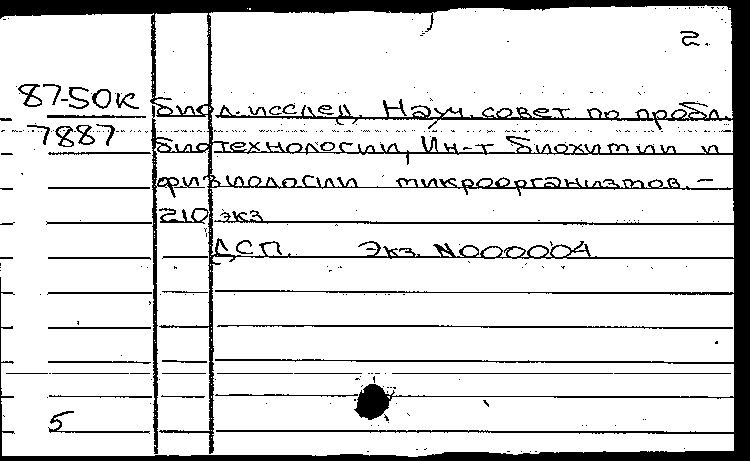 2.
87-50К биол. исслед, Науч. совет по пробл.
7887 биотехнологии, Ин-т биохимии и
физиологии микроорганизмов. –
210 экз
ДСП. Экз. N000004
5